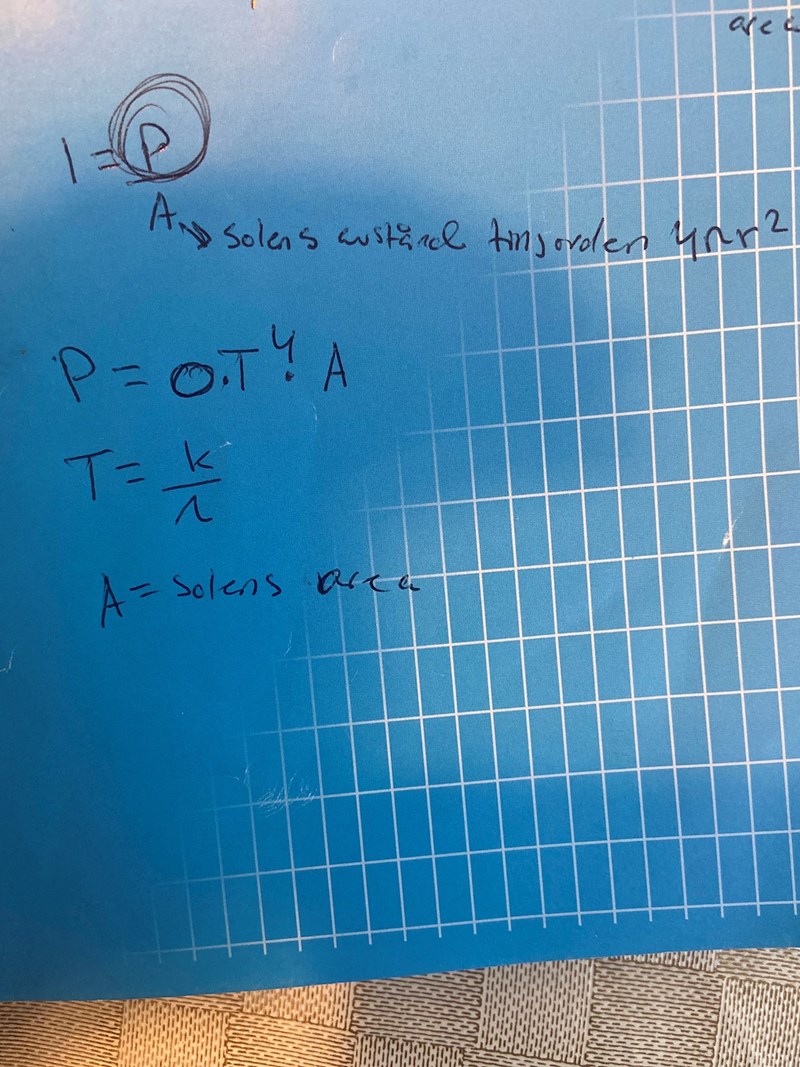 area
I = P
A → solens avstånd tilljorden 4πr²
P = σ·T⁴· A
T = k
λ
A = solens area